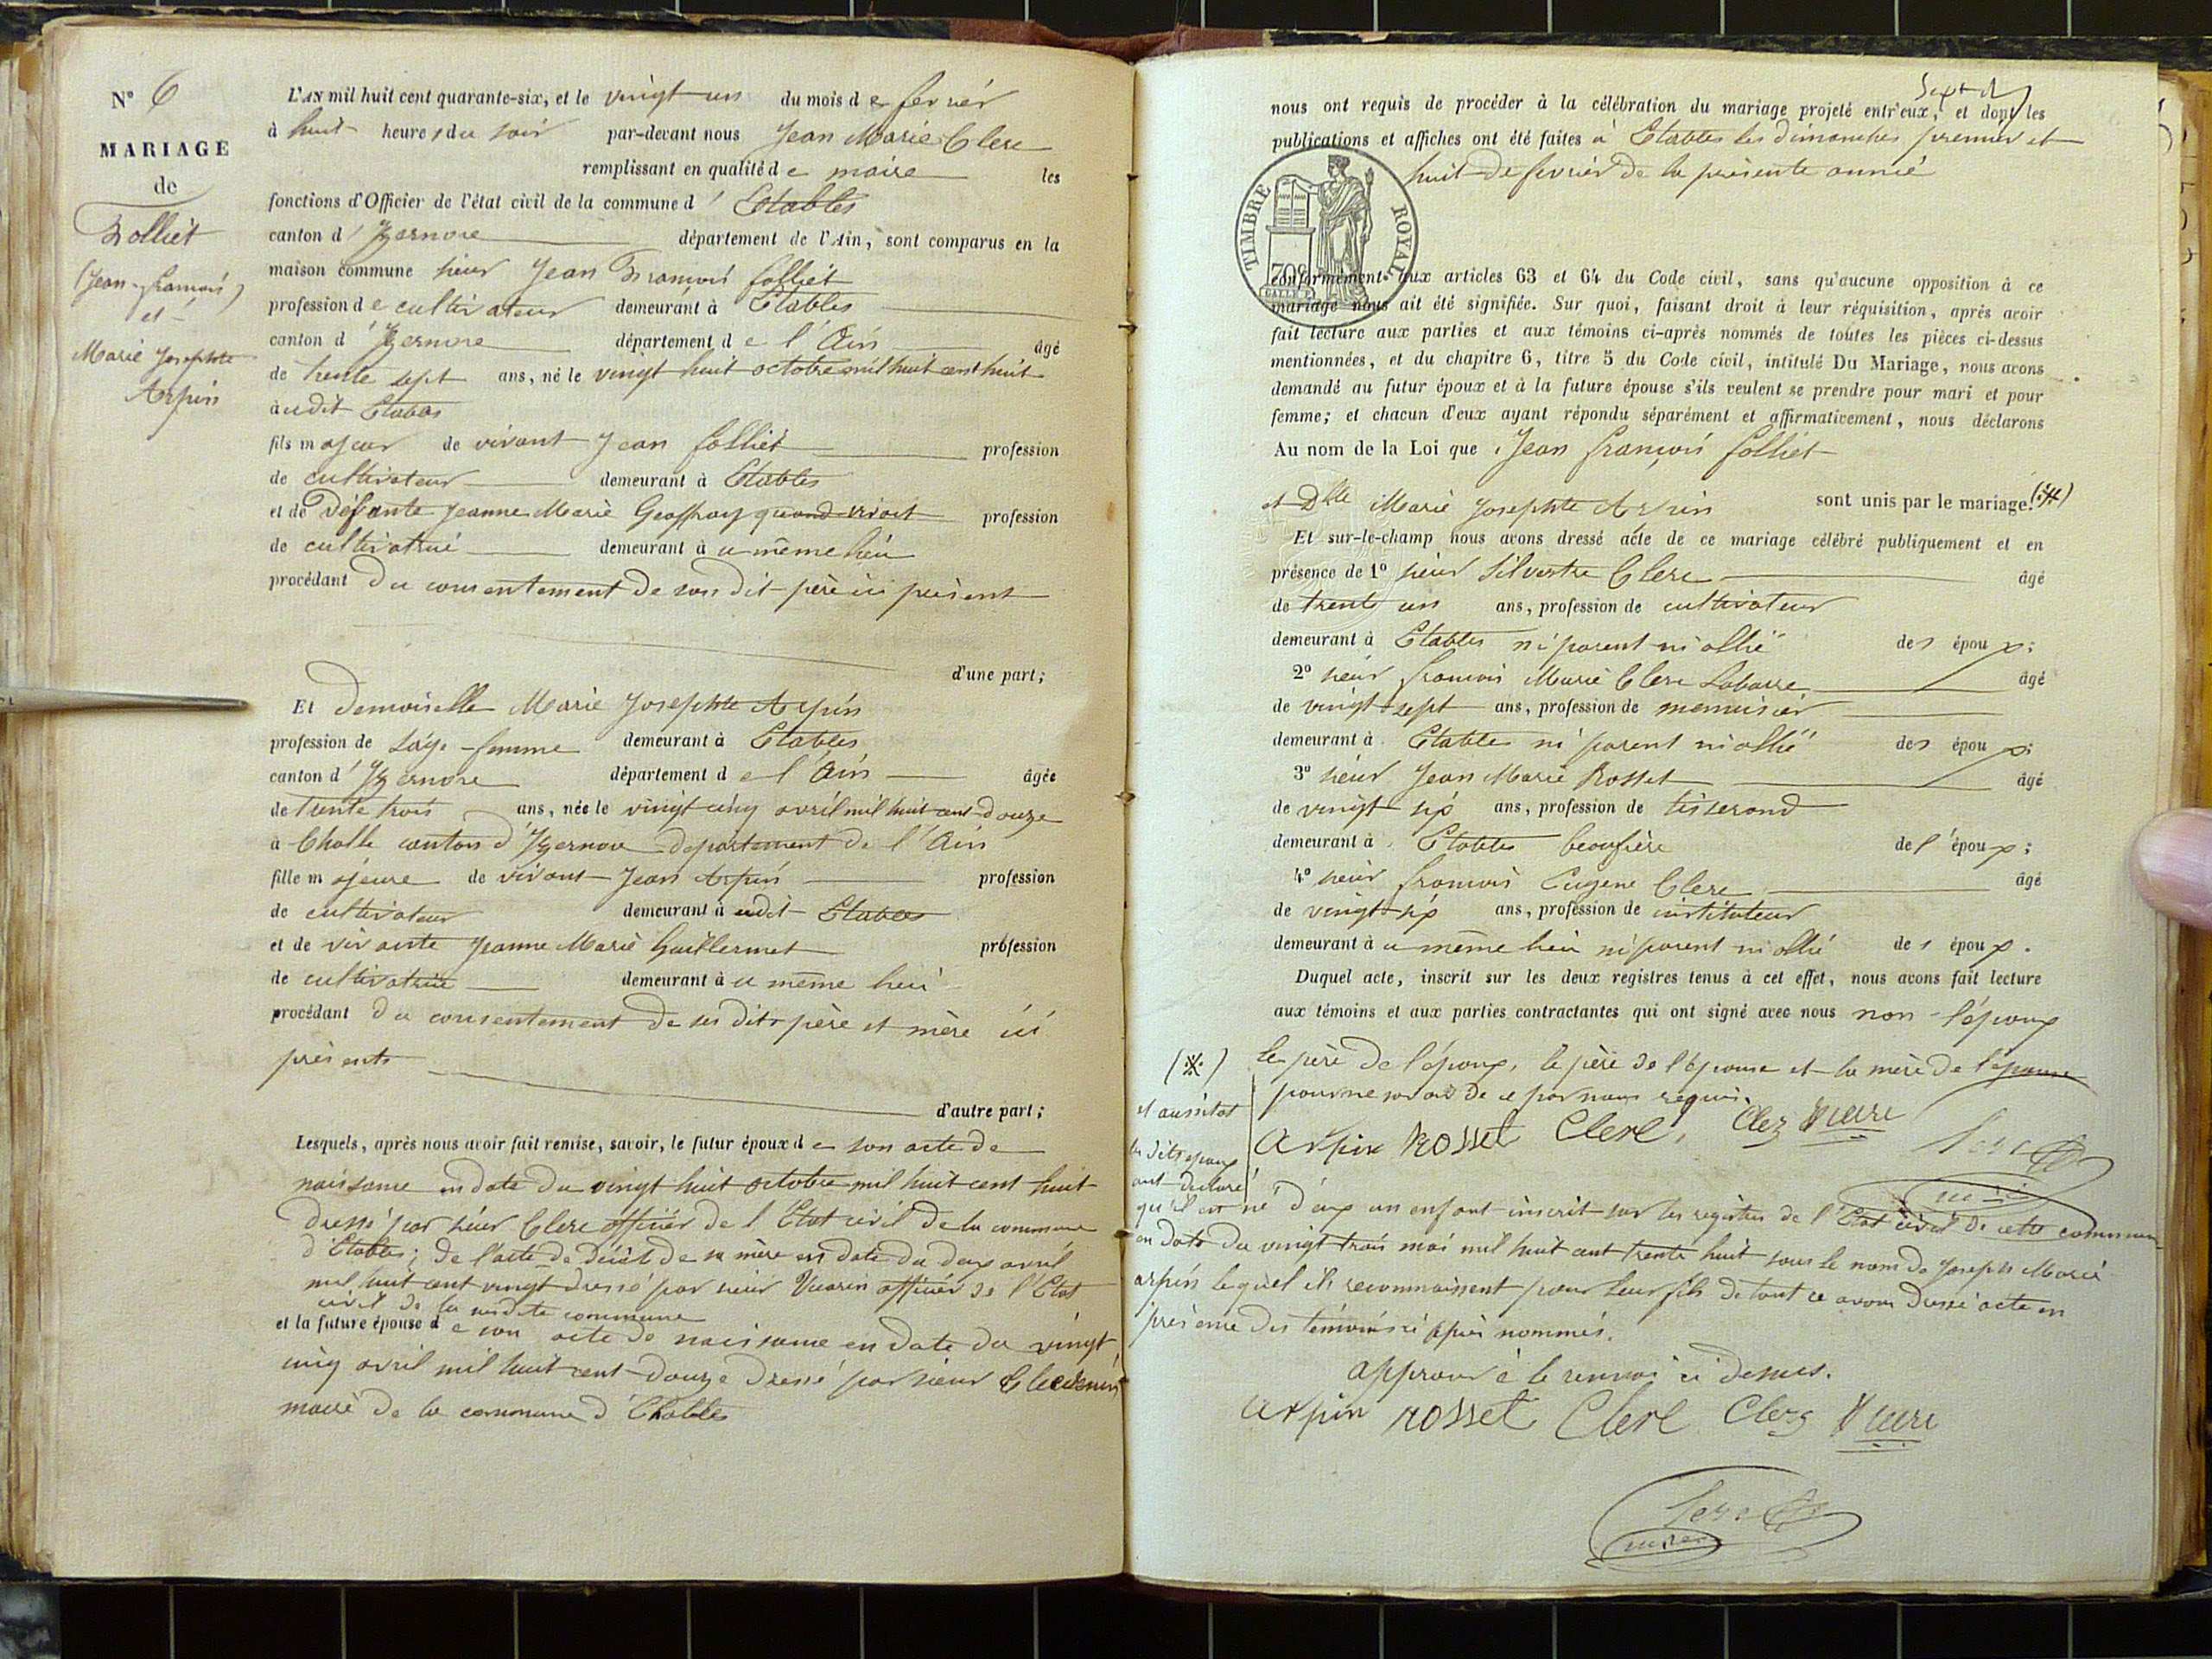 N° 6
MARIAGE
de
Folliet
(Jean-françois)
et
Marie Josephte
Arpin
L'AN mil huit cent quarante-six, et le vingt un du mois de fevrier
à huit heures du soir par-devant nous Jean Marie Clerc
remplissant en qualité de maire les
fonctions d'Officier de l'état civil de la commune d'Etables
canton d'Izernore département de l'Ain, sont comparus en la
maison commune sieur Jean François folliet
profession de cultivateur demeurant à Etables
canton d'Izernore département de l'Ain âgé
de trente sept ans, né le vingt huit octobre mil huit cent huit
audit Etables
fils majeur de vivant Jean folliet profession
de cultivateur demeurant à Etables
et de Défunte Jeanne Marie Geoffray quand vivait profession
de cultivatrice demeurant au même lieu
procédant du consentement de son dit père ici présent
d'une part;
Et Demoiselle Marie Josephte Arpin
profession de sage-femme demeurant à Etables
canton d'Izernore département de l'Ain âgée
de trente trois ans, née le vingt cinq avril mil huit cent douze
à Challe canton d'Izernore departement de l'Ain
fille majeure de vivant Jean Arpin profession
de cultivateur demeurant audit Etables
et de vivante Jeanne Marie Guillermet profession
de cultivatrice demeurant au même lieu
procédant du consentement de ses dits père et mère ici
présents
d'autre part;
Lesquels, après nous avoir fait remise, savoir, le futur époux de son acte de
naissance en date du vingt huit octobre mil huit cent huit
dressé par sieur Clerc officier de l'Etat civil de la commune
d'Etables; de l'acte de décès de sa mère en date du deux avril
mil huit cent vingt dressé par sieur Vuarin officier de l'Etat
civil de la susdite commune
et la future épouse de son acte de naissance en date du vingt
cinq avril mil huit cent douze dressé par sieur
maire de la commune d'Etables
nous ont requis de procéder à la célébration du mariage projeté entr'eux, et dont les
publications et affiches ont été faites à Etables les dimanches premier et
huit de fevrier de la présente année
TIMBRE ROYAL
70c
conformément aux articles 63 et 64 du Code civil, sans qu'aucune opposition à ce
mariage nous ait été signifiée. Sur quoi, faisant droit à leur réquisition, après avoir
fait lecture aux parties et aux témoins ci-après nommés de toutes les pièces ci-dessus
mentionnées, et du chapitre 6, titre 5 du Code civil, intitulé Du Mariage, nous avons
demandé au futur époux et à la future épouse s'ils veulent se prendre pour mari et pour
femme; et chacun d'eux ayant répondu séparément et affirmativement, nous déclarons
Au nom de la Loi que Jean françois folliet
et Dlle Marie Josephte Arpin sont unis par le mariage. (※)
Et sur-le-champ nous avons dressé acte de ce mariage célébré publiquement et en
présence de 1° sieur Silvestre Clerc âgé
de trente un ans, profession de cultivateur
demeurant à Etables ni parent ni allié des époux;
2° sieur françois Marie Clerc Labarre âgé
de vingt sept ans, profession de menuisier
demeurant à Etables ni parent ni allié des époux;
3° sieur Jean Marie Rosset âgé
de vingt six ans, profession de tisserand
demeurant à Etables beaufrère de l'époux;
4° sieur françois Eugene Clerc âgé
de vingt six ans, profession de instituteur
demeurant au même lieu ni parent ni allié des époux.
Duquel acte, inscrit sur les deux registres tenus à cet effet, nous avons fait lecture
aux témoins et aux parties contractantes qui ont signé avec nous non l'époux
le père de l'époux, le père de l'épouse et la mère de l'épouse
pour ne savoir de ce par nous requis.
Arpin Rosset Clerc, Clerc
(※)
et aussitot
les dits epoux
ont declaré
qu'il est né d'eux un enfant inscrit sur les registres de l'Etat civil de cette commune
en date du vingt trois mai mil huit cent trente huit sous le nom de Joseph Marie
arpin lequel ils reconnaissent pour leur fils de tout ce avons dressé acte en
présence des témoins ci après nommés.
approuvé le renvoi ci dessus.
arpin rosset Clerc Clerc